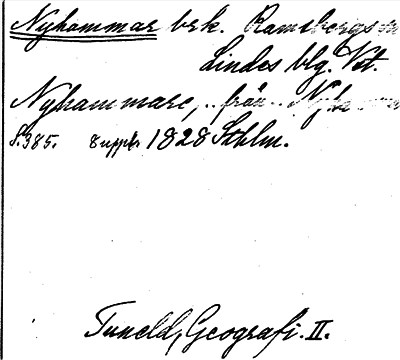 Nyhammar brk. Ramsbergs sn
Lindes blg. Vst.
Nyhammare, .. från .. Nyha
S. 385. 8 uppl. 1828 Sthlm.
Tuneld, Geografi. II.